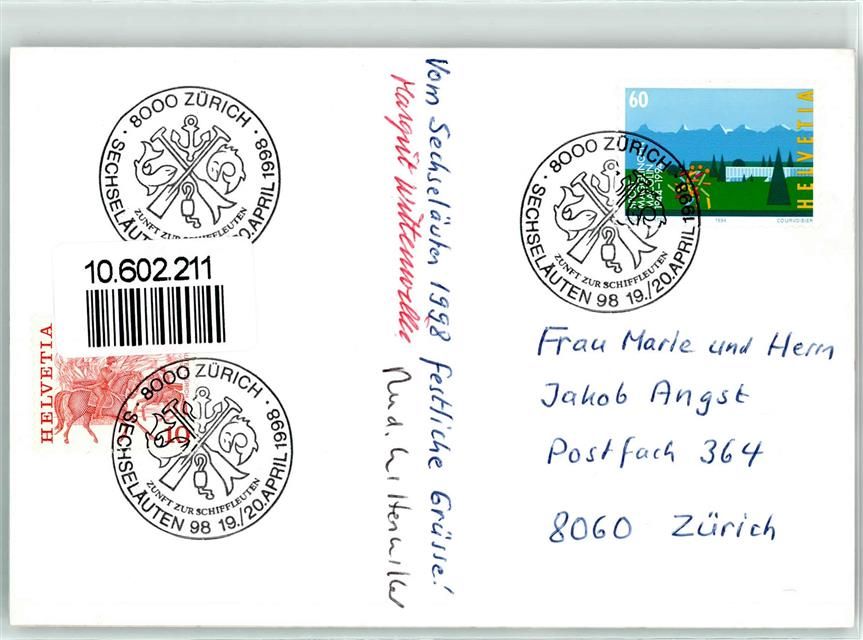 8000 ZÜRICH
SECHSELÄUTEN
20.APRIL 1998
ZUNFT ZUR SCHIFFLEUTEN
10.602.211
HELVETIA
10
8000 ZÜRICH
SECHSELÄUTEN 98 19./20.APRIL 1998
ZUNFT ZUR SCHIFFLEUTEN
Vom Sechseläuten 1998 festliche Grüsse!
Margrit Wittenwiller
Rud. Wittenwiller
60
HELVETIA
1944-1994
1994
COURVOISIER
8000 ZÜRICH
SECHSELÄUTEN 98 19./20.APRIL 1998
ZUNFT ZUR SCHIFFLEUTEN
Frau Marle und Herrn
Jakob Angst
Postfach 364
8060 Zürich